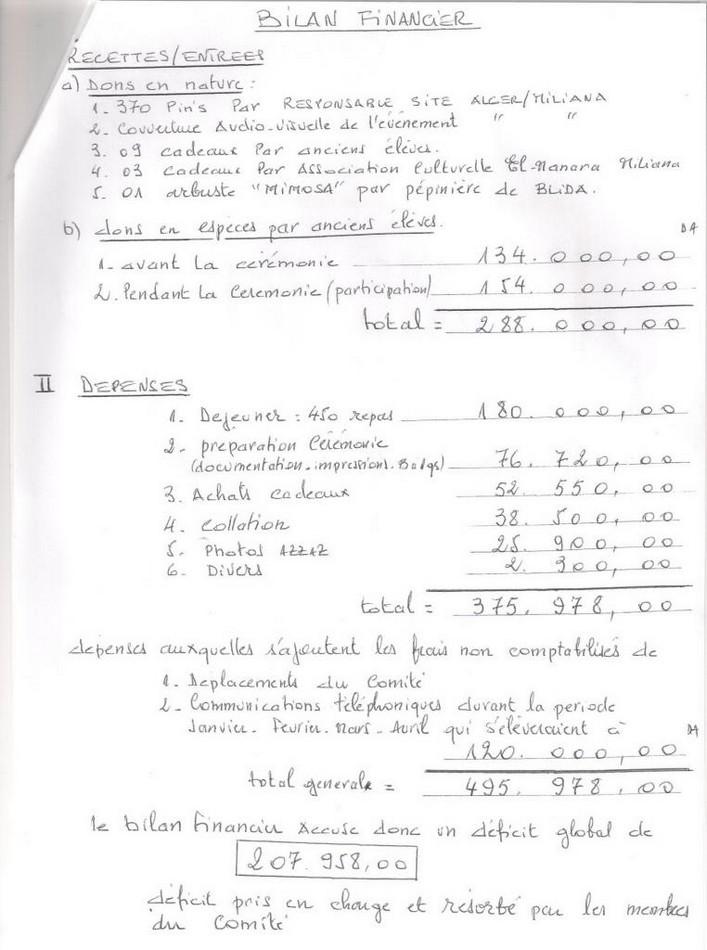 BILAN FINANCIER
RECETTES/ENTREES
a) Dons en nature :
1. 370 Pin's Par RESPONSABLE SITE ALGER/MILIANA
2. Couverture Audio-visuelle de l'évènement " "
3. 09 cadeaux Par anciens élèves.
4. 03 cadeaux Par Association Culturelle El-Manara Miliana
5. 01 arbuste "MIMOSA" par pépinière de BLIDA.
b) dons en espèces par anciens élèves.
DA
1- avant la cérémonie 134.000,00
2. Pendant la Ceremonie (participation) 154.000,00
total = 288.000,00
II DEPENSES
1. Dejeuner : 450 repas 180.000,00
2- preparation Cérémonie
(documentation-impressions-Badgs) 76.720,00
3. Achats cadeaux 52.550,00
4. Collation 38.500,00
5. Photos AZZAZ 25.900,00
6. Divers 2.300,00
total = 375.978,00
depenses auxquelles s'ajoutent les frais non comptabilisés de
1. Deplacements du Comité
2- Communications téléphoniques durant la periode
Janvier- Fevrier- Mars- Avril qui s'élèveraient à
DA
120.000,00
total generale = 495.978,00
le bilan financier accuse donc un déficit global de
207.958,00
déficit pris en charge et résorbé par les membres
du Comité